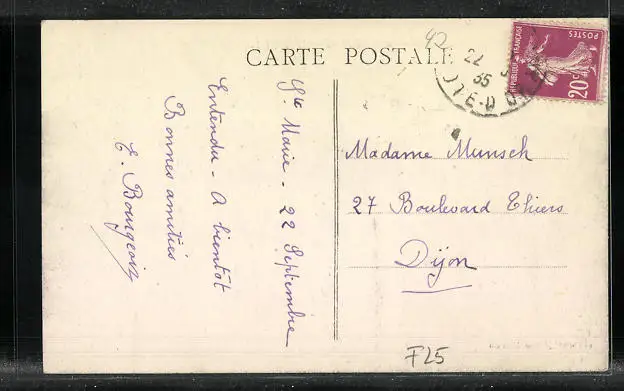 CARTE POSTALE
Ste Marie - 22 Septembre
Entendu - A bientôt
Bonnes amitiés
E. Bourgeois
Madame Munsch
27 Boulevard Thiers
Dijon
RÉPUBLIQUE FRANÇAISE
POSTES
20c
22
35
CÔTE-D'OR
F25